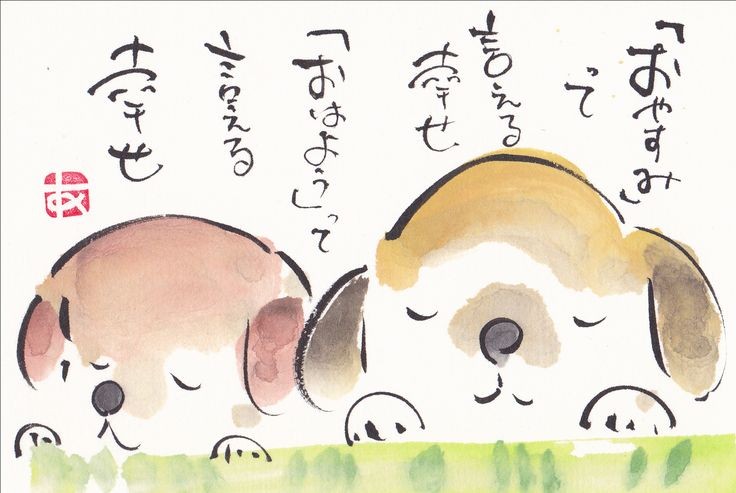 「おやすみ」
って
言える
幸せ
「おはよう」って
言える
幸せ
あ